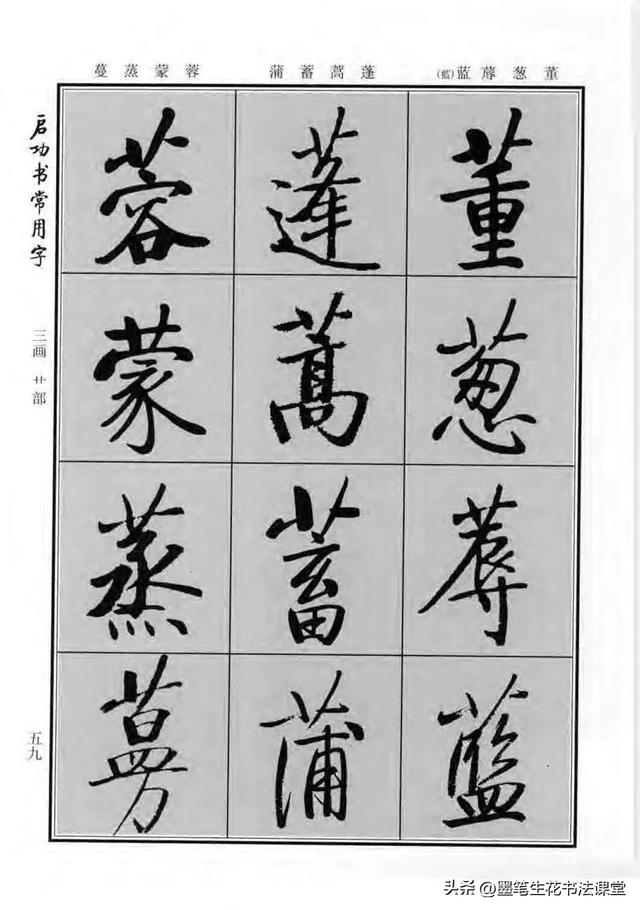 董葱蓐蓝(藍) 蓬蒿蓄蒲 蓉蒙蒸蔓
董葱蓐藍
蓬蒿蓄蒲
蓉蒙蒸蔓
启功书常用字
三画 艹部
五九
头条 @墨笔生花书法课堂